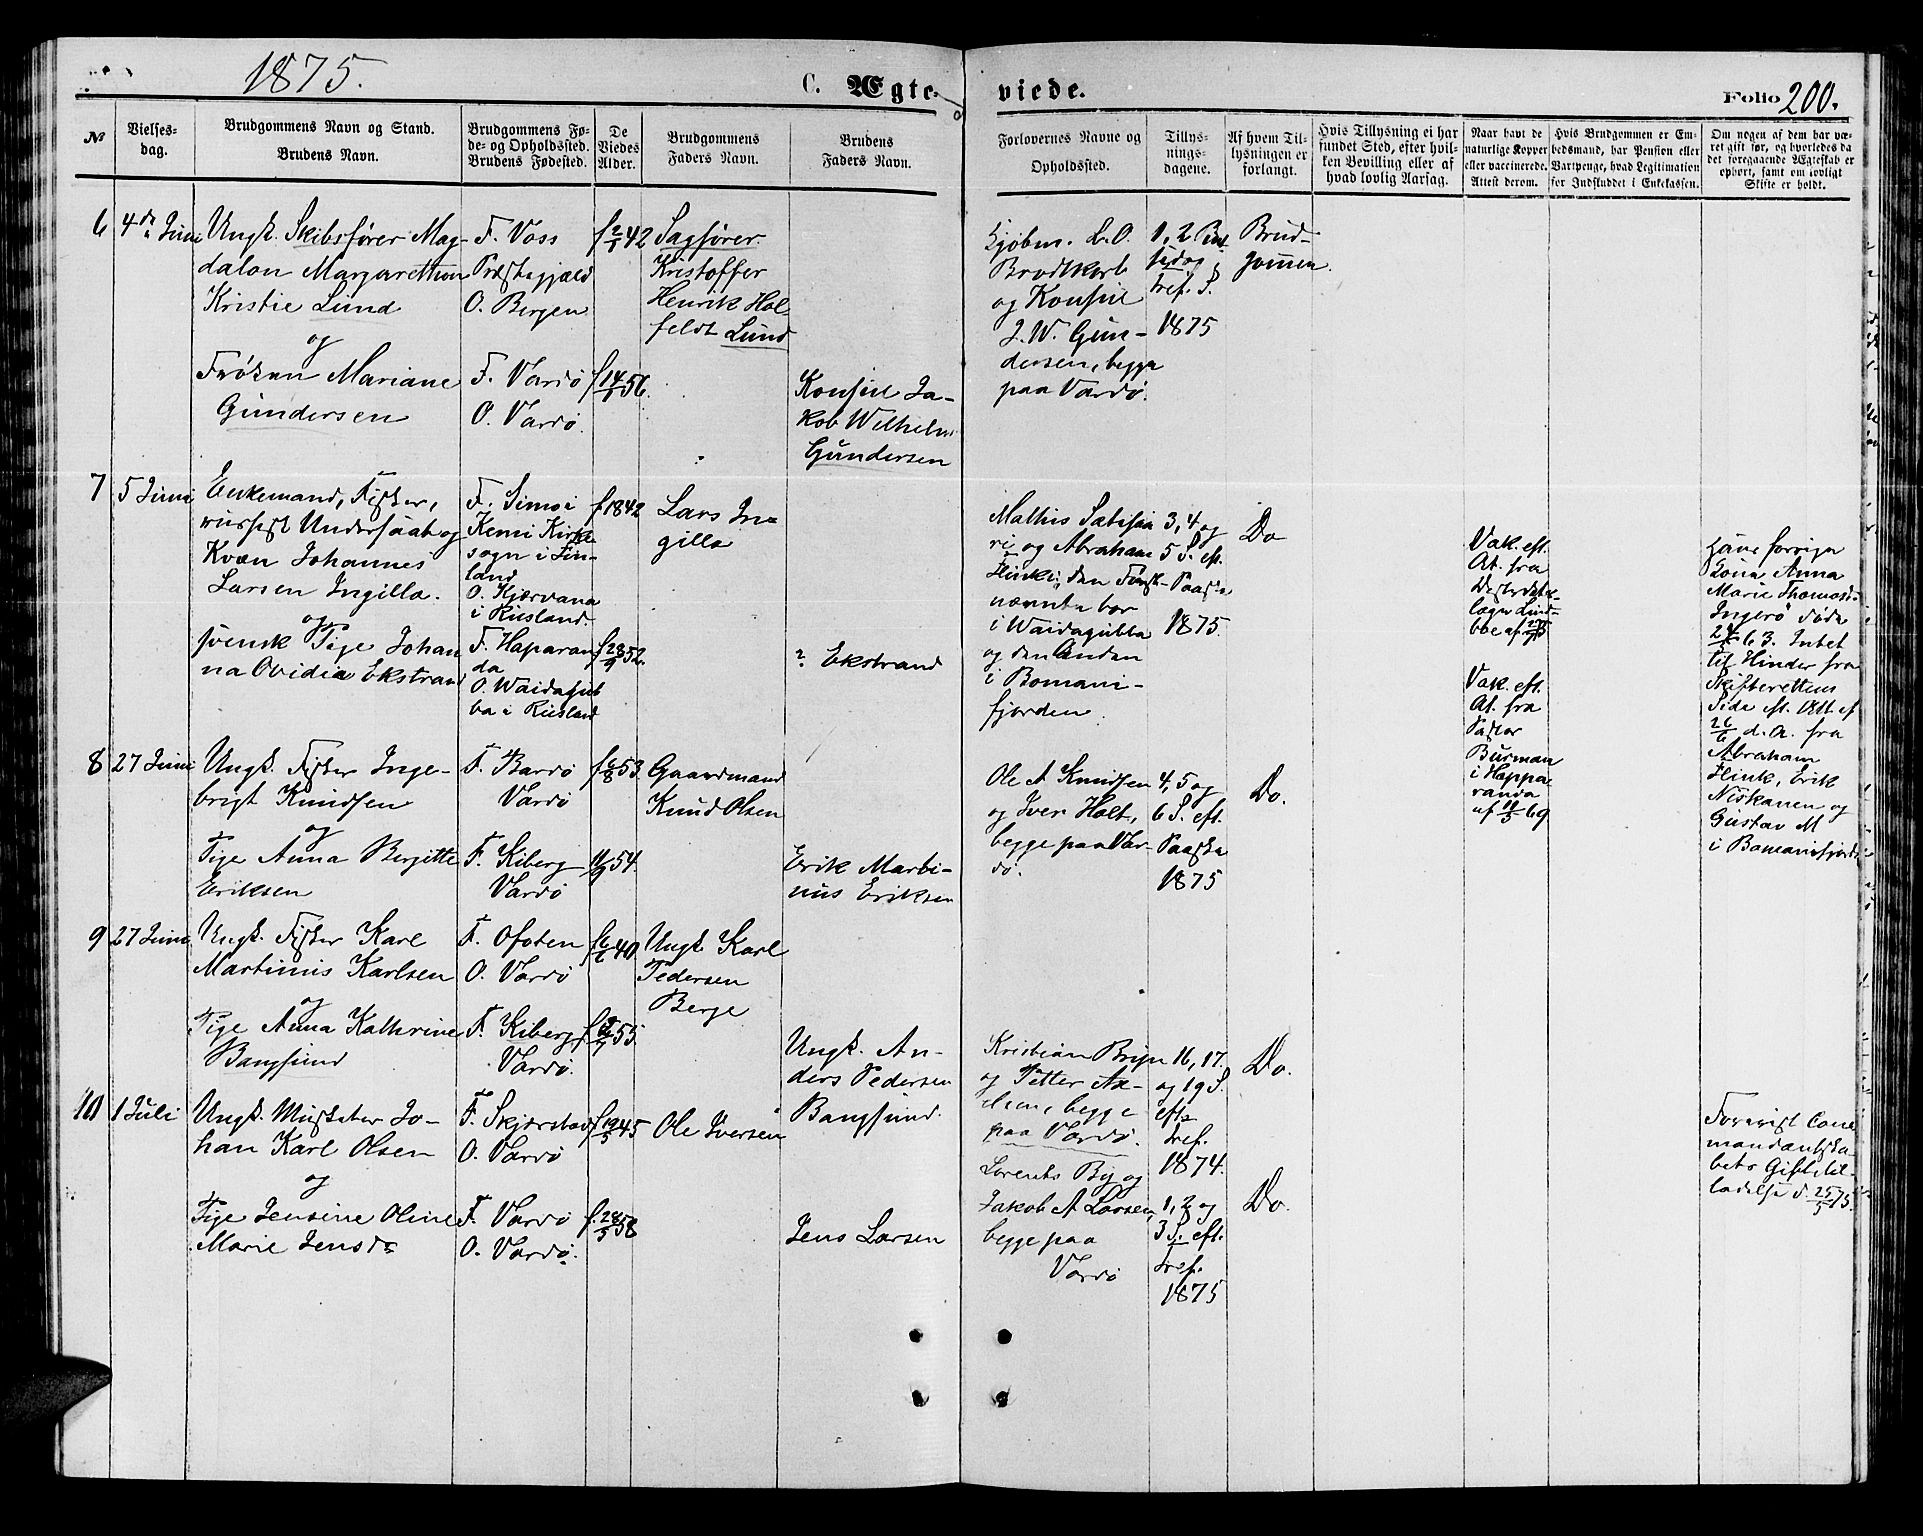 1875.
C. Ægte-
viede.
Folio 200.
No
Vielses-
dag.
Brudgommens Navn og Stand.
Brudens Navn.
Brudgommens Fø-
de- og Opholdssted.
Brudens Fødested.
De
Viedes
Alder.
Brudgommens
Faders Navn.
Brudens
Faders Navn.
Forlovernes Navne og
Opholdssted.
Tillys-
nings-
dagene.
Af hvem Til-
lysningen er
forlangt.
Hvis Tillysning ei har
fundet Sted, efter hvil-
ken Bevilling eller af
hvad lovlig Aarsag.
Naar havt de
naturlige Kopper
eller vaccinerede.
Attest derom.
Hvis Brudgommen er Em-
bedsmand, har Pension eller
Vartpenge, hvad Legitimation
for Indskuddet i Enkekassen.
Om nogen af dem har væ-
ret gift før, og hvorledes da
det foregaaende Ægteskab er
ophørt, samt om lovligt
Skifte er holdt.
6
4de Juni
Ungk. Skibsfører Mag-
dalon Margarethon
Kristie Lund
og
Frøken Mariane
Gundersen
F. Voss
Præstegjæld
O. Bergen
F. Vardö
O. Vardö
f 2/1 42
f 14/1 56.
Sagfører
Kristoffer
Henrik Hol
feldt Lund
Konsul Ja-
kob Wilhelm
Gundersen
Kjøbm. L. O.
Brodtkorb
og Konsul
J. W. Gun-
dersen, begge
paa Vardö.
1, 2
og
Tref. S.
1875
Brud-
gommen.
7
5 Juni
Enkemand, Fisker,
russisk Undersaat og
Kvæn Johannes
Larsen Ingilla.
og
svensk Pige Johan
na Ovidia Ekstrand
F. Simo i
Kemi Kirke-
sogn i Fin-
land
O. Kjærvana
i Rusland.
F. Haparan
da
O. Waidagub
ba i Rusland
f 1842
f 28/9 52.
Lars In-
gilla
? Ekstrand
Mathis
og Abraham
Hinki, den Først-
nævnte bor
i Waidagubba
og den Anden
i Bomani-
fjorden
3, 4 og
5 S. eft.
Paaske
1875.
Do
Vak. eft.
At. fra
Vak. eft.
At. fra
Pastor
Burman
i Happa
randa
af 11/5 69
forrige
Kona Anna
Marie
døde
63. Intet
til Hinder fra
Skifterettens
Side eft. Att. af
26/6 d. A. fra
Abraham
Hink, Erik
Niskanen og
Gustav M
i Bomanifjord
8
27 Juni
Ungk. Fisker Inge-
brigt Knudsen
og
Pige Anna Bergitte
Eriksen
F. Bardö
Vardö
F. Kiberg
Vardö
f 6/8 53.
54.
Gaardmand
Knud Olsen
Erik Marti-
nus Eriksen
Ole A Knudsen
og Iver Holt,
begge paa Var-
dö.
4, 5 og
6 S. eft.
Paaske
1875
Do.
9
27 Juni
Ungk. Fisker Karl
Martinus Karlsen
og
Pige Anna Kathrine
Bangsund
F. Ofoten
O. Vardö
F. Kiberg
Vardö.
f 6/6 40
55.
Ungk. Karl
Pedersen
Berge
Ungk. An-
ders Pedersen
Bangsund.
Kristian Bryn
og Petter Ax-
elsen, begge
paa Vardö.
16, 17.
og 19 S.
eft.
Tref.
1874.
Do.
10
1 Juli
Ungk. Musketer Jo-
han Karl Olsen
og
Pige Jensine Oline
Marie Jensdr
F. Skjerstad
O. Vardö
F. Vardö
O. Vardö.
f 19/5 45
f. 28/5 58
Ole Iversen
Jens Larsen
Lorents By og
Jakob A Larsen,
begge paa
Vardö
1, 2 og
3 S. eft.
Tref.
1875
Do.
Forevist Com
mandantska
bets Giftetil-
ladelse d. 25/5 75.